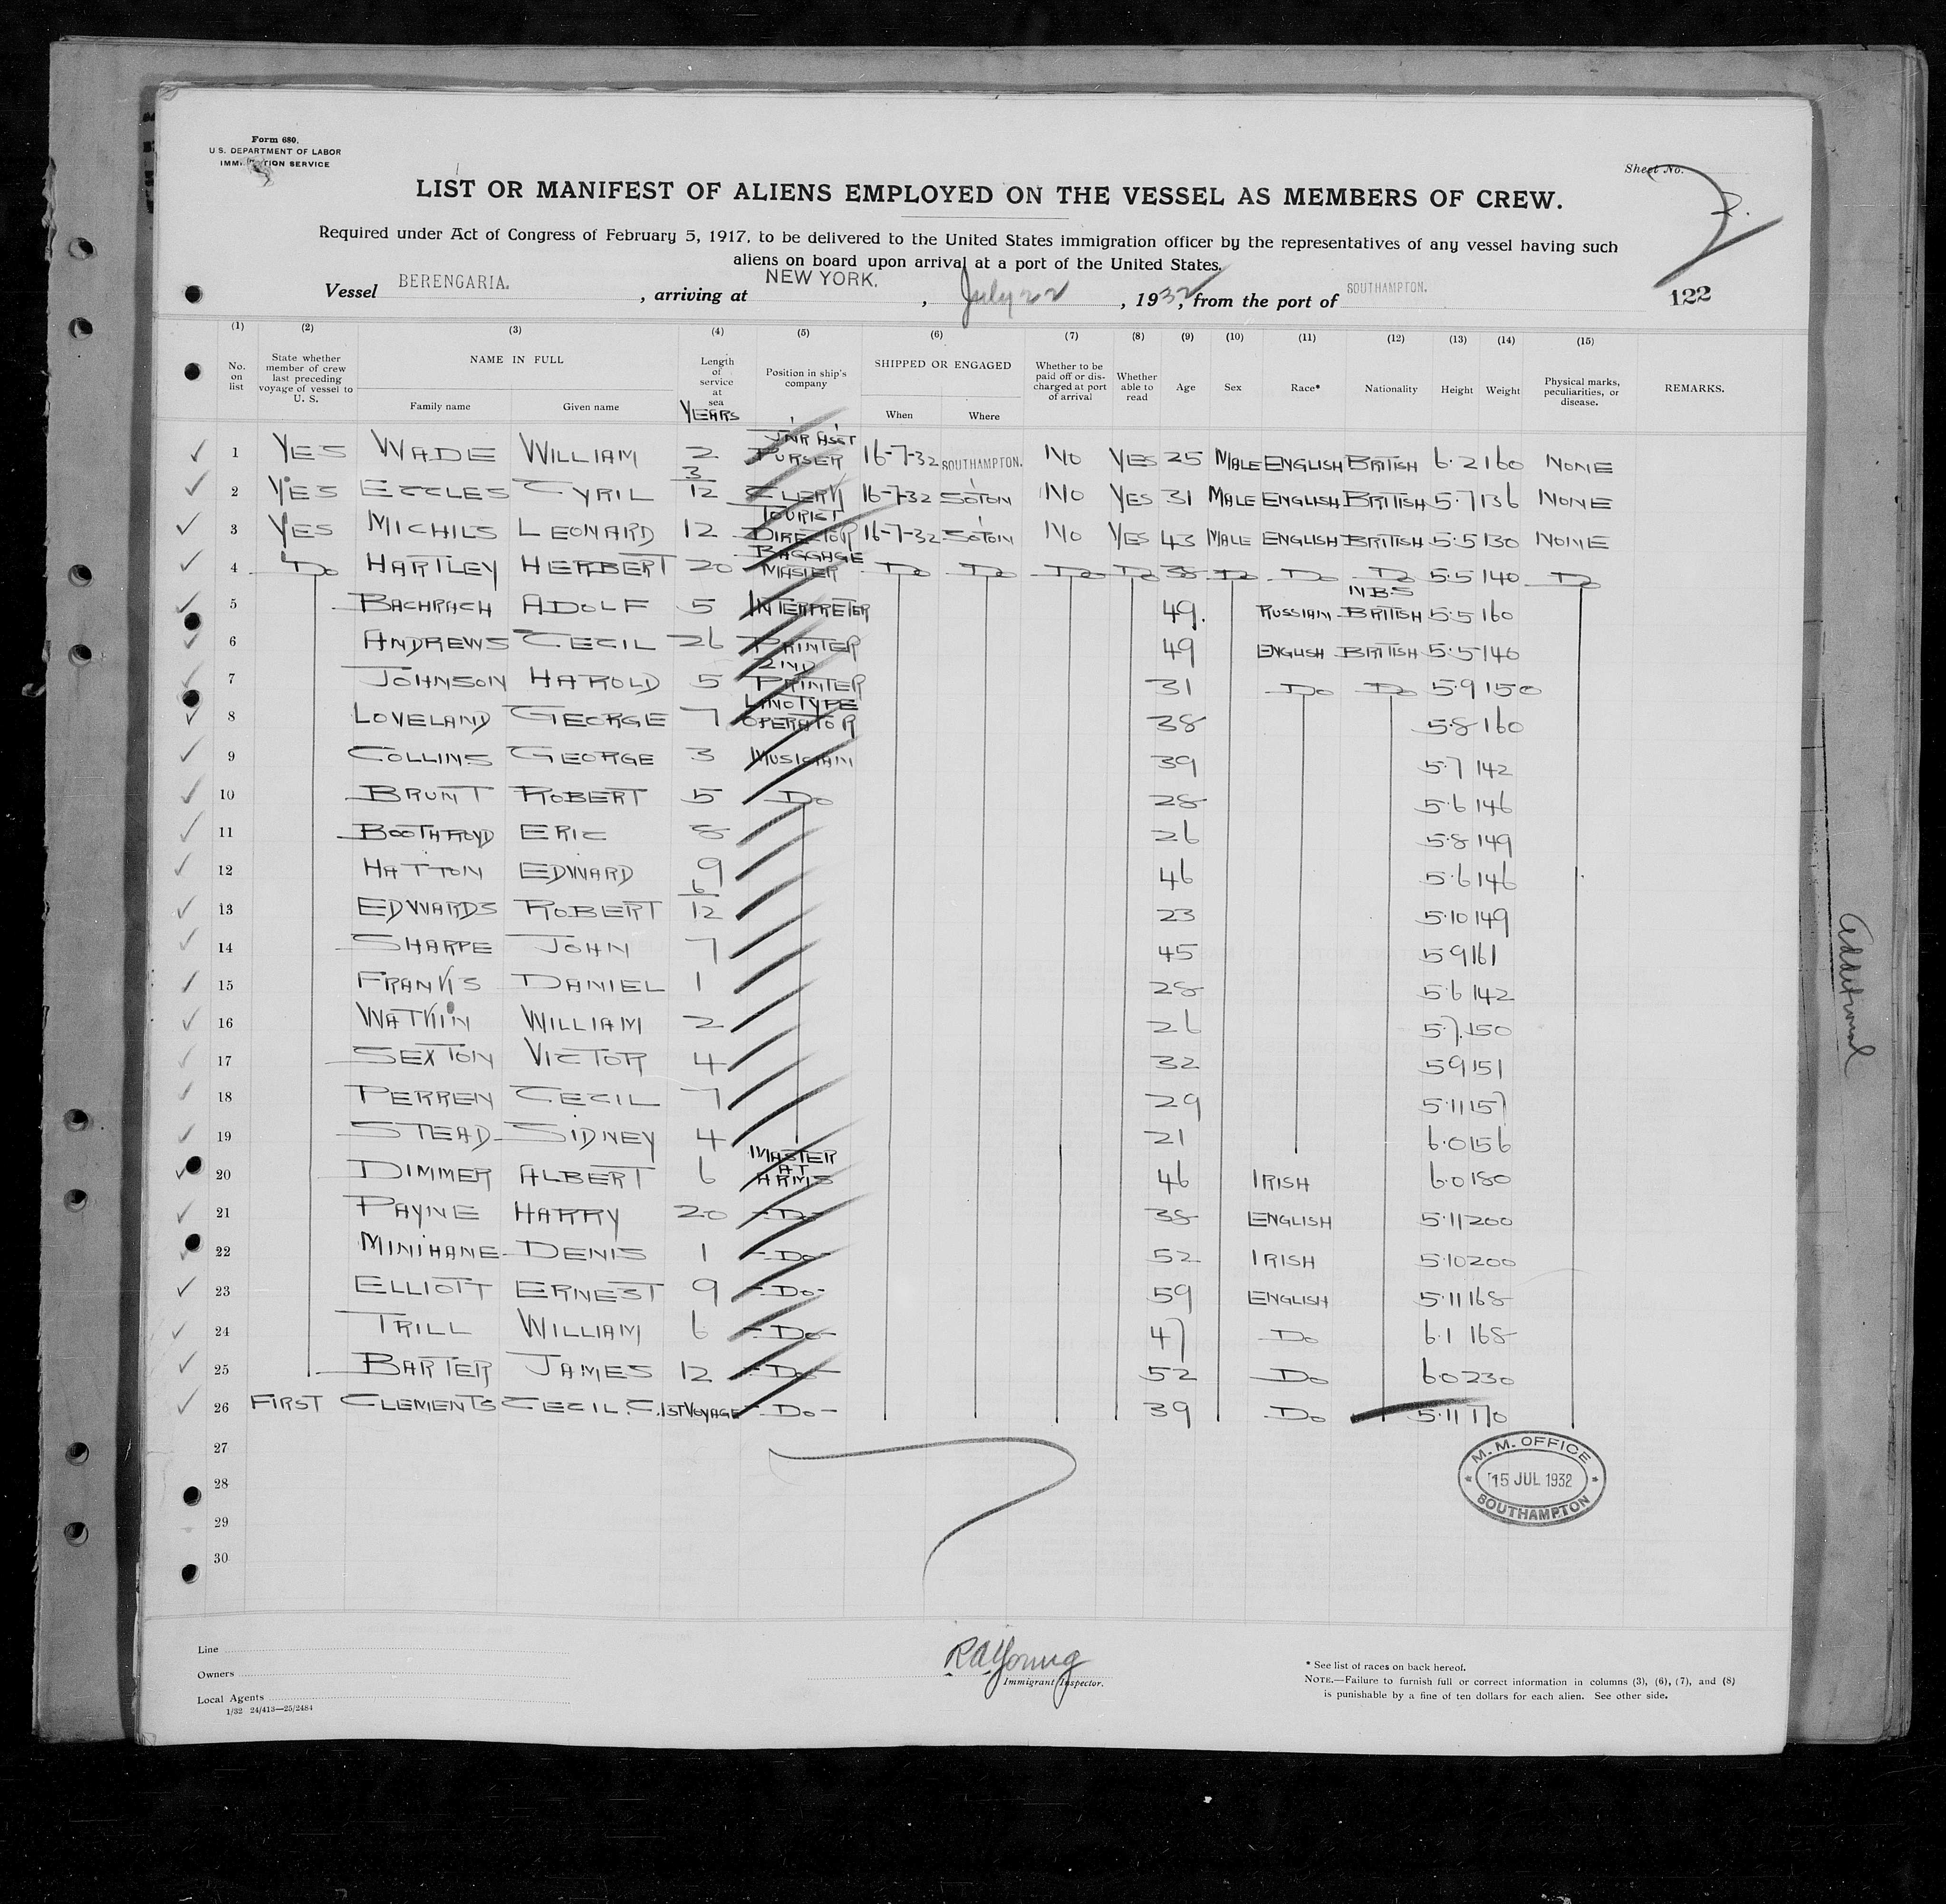 Form 680.
U.S. DEPARTMENT OF LABOR
IMMIGRATION SERVICE
Sheet No. 2.
LIST OR MANIFEST OF ALIENS EMPLOYED ON THE VESSEL AS MEMBERS OF CREW.
Required under Act of Congress of February 5, 1917, to be delivered to the United States immigration officer by the representatives of any vessel having such
aliens on board upon arrival at a port of the United States.
Vessel BERENGARIA. , arriving at NEW YORK. , July 22 , 1932, from the port of SOUTHAMPTON. 122
(1) (2) (3) (4) (5) (6) (7) (8) (9) (10) (11) (12) (13) (14) (15)
No. on list State whether member of crew last preceding voyage of vessel to U. S. NAME IN FULL Family name Given name Length of service at sea YEARS Position in ship's company SHIPPED OR ENGAGED When Where Whether to be paid off or discharged at port of arrival Whether able to read Age Sex Race* Nationality Height Weight Physical marks, peculiarities, or disease. REMARKS.
1 YES WADE WILLIAM 2 JNR ASST PURSER 16-7-32 SOUTHAMPTON. NO YES 25 MALE ENGLISH BRITISH 6.2 160 NONE
2 YES ECCLES CYRIL 3/12 CLERK 16-7-32 SOTON NO YES 31 MALE ENGLISH BRITISH 5.7 136 NONE
3 YES MICHILS LEONARD 12 TOURIST DIRECTOR 16-7-32 SOTON NO YES 43 MALE ENGLISH BRITISH 5.5 130 NONE
4 DO HARTLEY HERBERT 20 BAGGAGE MASTER DO DO DO DO 38 DO DO DO 5.5 140 DO
5 BACHRACH ADOLF 5 INTERPRETER 49. RUSSIAN N.B.S BRITISH 5.5 160
6 ANDREWS CECIL 26 PRINTER 49 ENGLISH BRITISH 5.5 140
7 JOHNSON HAROLD 5 2ND PRINTER 31 DO DO 5.9 150
8 LOVELAND GEORGE 7 LINOTYPE OPERATOR 38 5.8 160
9 COLLINS GEORGE 3 MUSICIAN 39 5.7 142
10 BRUNT ROBERT 5 DO 28 5.6 146
11 BOOTHROYD ERIC 8 26 5.8 149
12 HATTON EDWARD 9 46 5.6 146
13 EDWARDS ROBERT 6/12 23 5.10 149
14 SHARPE JOHN 7 45 5 9 161
15 FRANKS DANIEL 1 28 5.6 142
16 WATKIN WILLIAM 2 26 5.7 150
17 SEXTON VICTOR 4 32 5 9 151
18 PERREN CECIL 7 29 5.11 157
19 STEAD SIDNEY 4 21 6.0 156
20 DIMMER ALBERT 6 MASTER AT ARMS 46 IRISH 6.0 180
21 PAYNE HARRY 20 -DO- 38 ENGLISH 5.11 200
22 MINIHANE DENIS 1 -DO- 52 IRISH 5.10 200
23 ELLIOTT ERNEST 9 -DO- 59 ENGLISH 5.11 168
24 TRILL WILLIAM 6 -DO- 47 DO 6.1 168
25 BARTER JAMES 12 -DO- 52 DO 6.0 230
26 FIRST CLEMENTS CECIL. C. 1ST VOYAGE -DO- 39 DO 5.11 170
27
28
29
30
M. M. OFFICE
15 JUL 1932
SOUTHAMPTON
Additional
Line
Owners
Local Agents
1/32 24/413—25/2484
R A Young
Immigrant Inspector.
* See list of races on back hereof.
NOTE.—Failure to furnish full or correct information in columns (3), (6), (7), and (8)
is punishable by a fine of ten dollars for each alien. See other side.